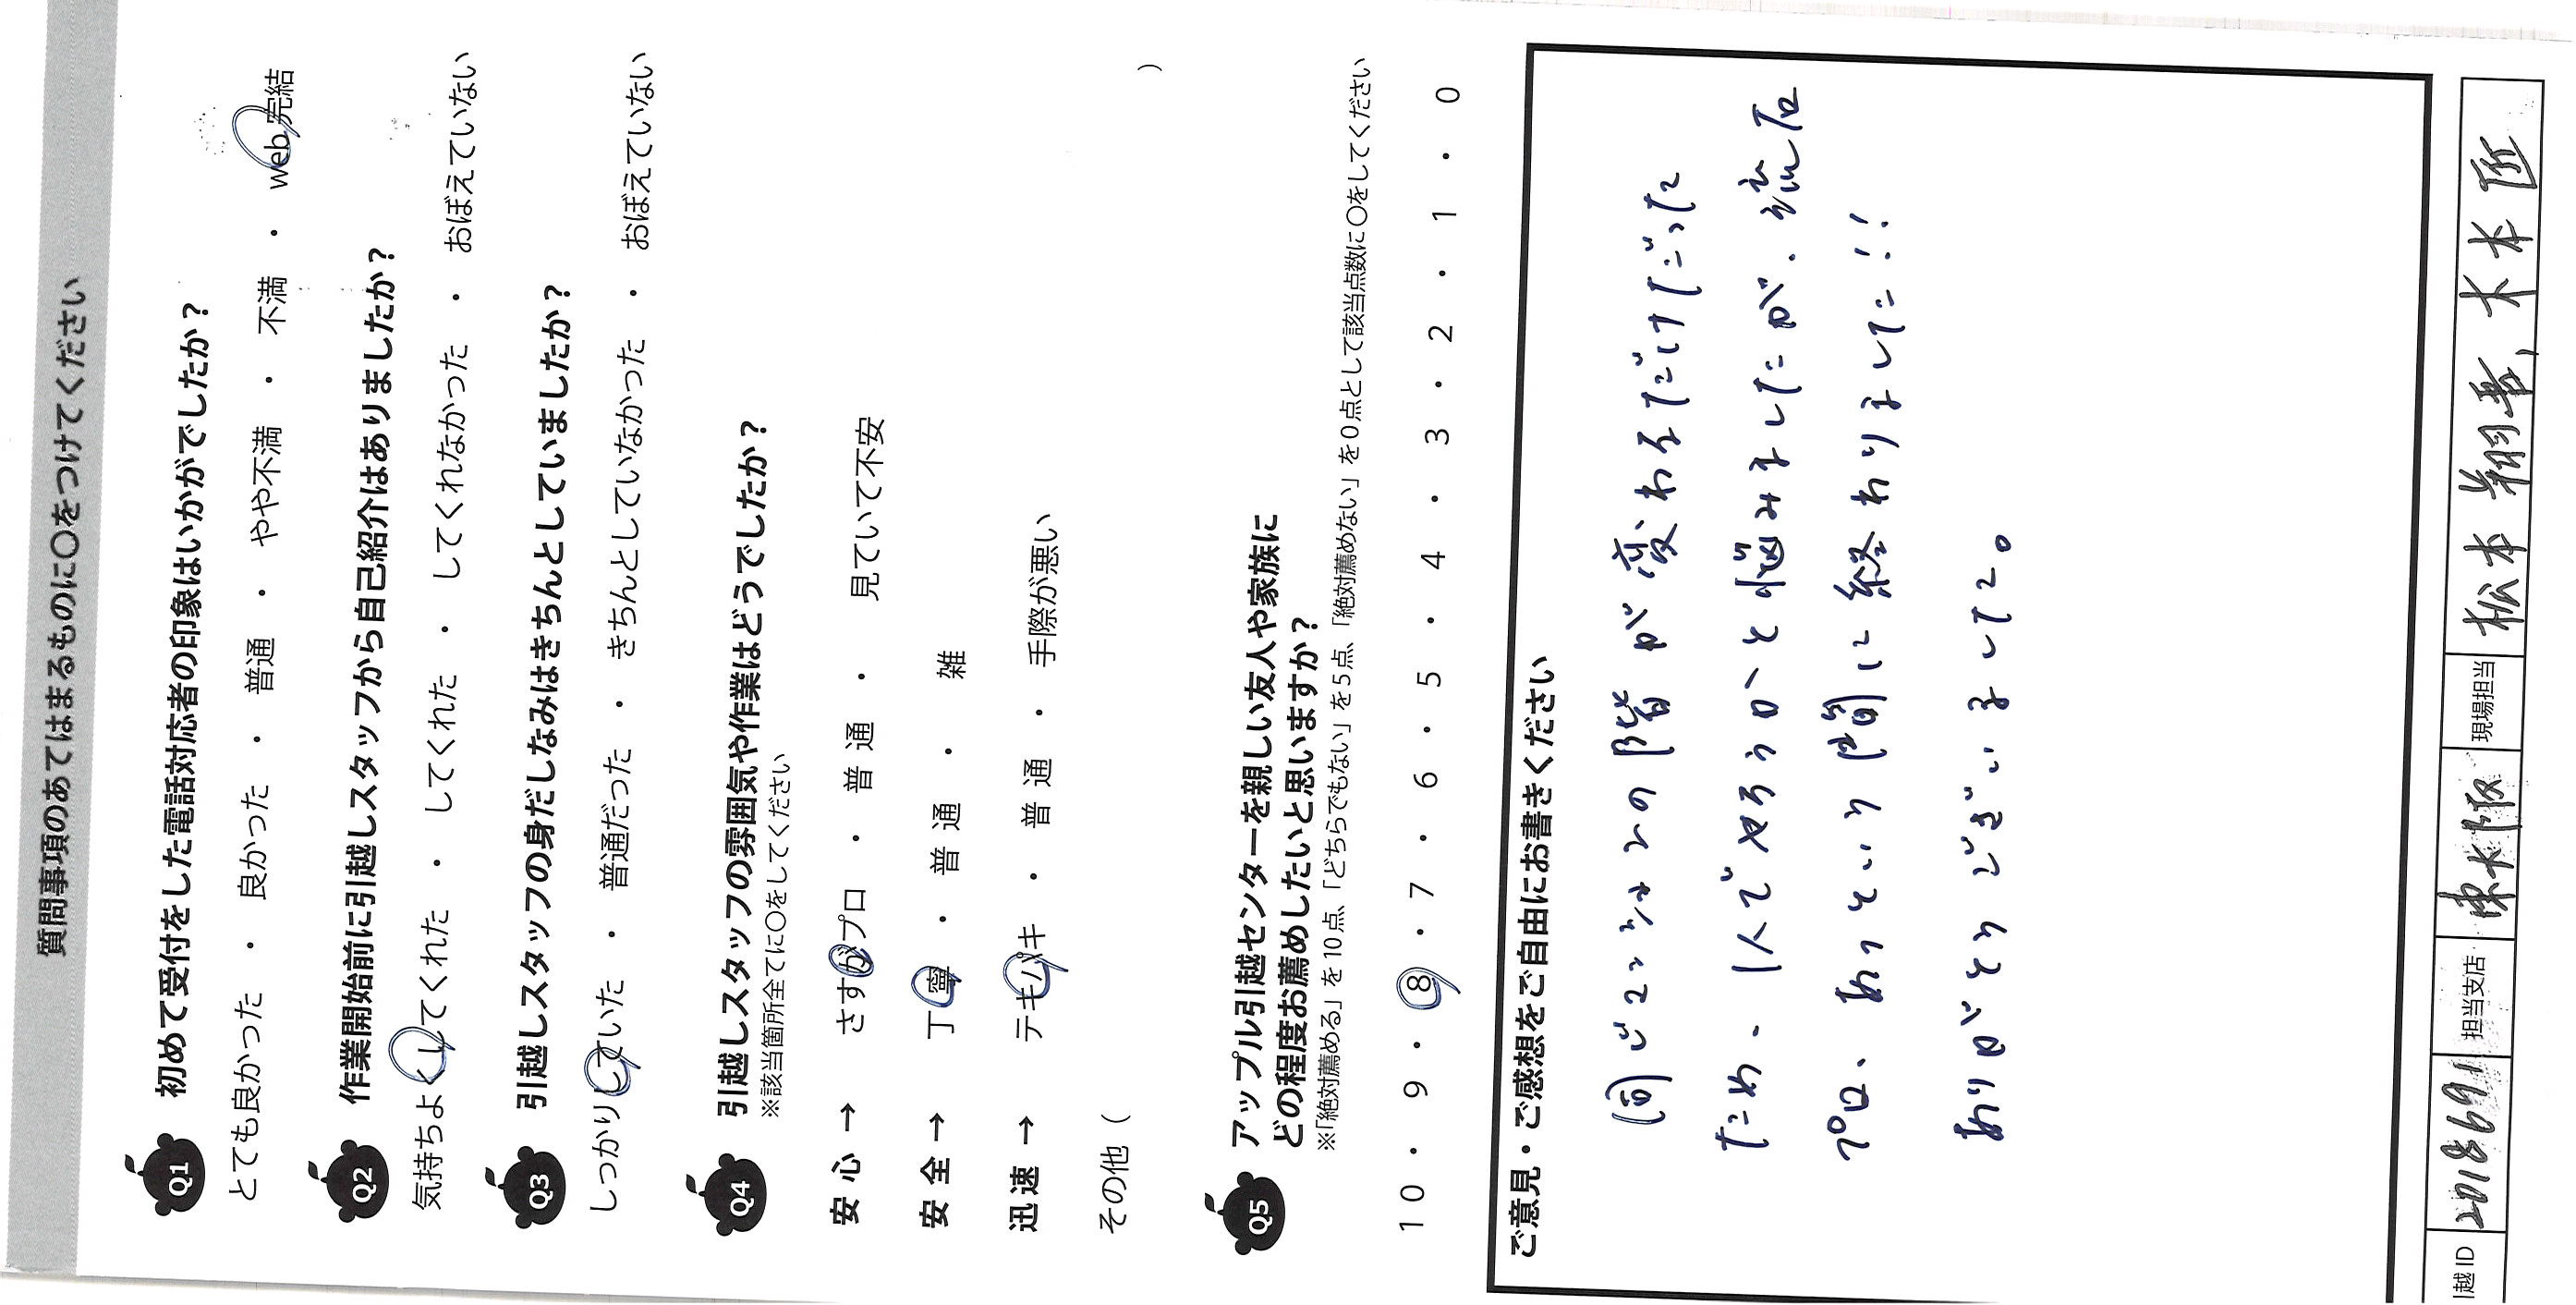 質問事項のあてはまるものに〇をつけてください
Q1 初めて受付をした電話対応者の印象はいかがでしたか？
とても良かった ・ 良かった ・ 普通 ・ やや不満 ・ 不満 ・ web完結
Q2 作業開始前に引越しスタッフから自己紹介はありましたか？
気持ちよくしてくれた ・ してくれた ・ してくれなかった ・ おぼえていない
Q3 引越しスタッフの身だしなみはきちんとしていましたか？
しっかりしていた ・ 普通だった ・ きちんとしていなかった ・ おぼえていない
Q4 引越しスタッフの雰囲気や作業はどうでしたか？
※該当箇所全てに〇をしてください
安心→ さすがプロ ・ 普通 ・ 見ていて不安
安全→ 丁寧 ・ 普通 ・ 雑
迅速→ テキパキ ・ 普通 ・ 手際が悪い
その他（ ）
Q5 アップル引越センターを親しい友人や家族に
どの程度お薦めしたいと思いますか？
※「絶対薦める」を10点、「どちらでもない」を5点、「絶対薦めない」を0点として該当点数に〇をしてください
10 ・ 9 ・ 8 ・ 7 ・ 6 ・ 5 ・ 4 ・ 3 ・ 2 ・ 1 ・ 0
ご意見・ご感想をご自由にお書きください
同じマンションの階が変わるだけだった
ため、1人でやろうかと悩みましたが、流石
プロ、あっという間に終わりました!!
ありがとうございまして。
越ID 2018691 担当支店 東大阪 現場担当 松本 翔季, 木本 匠